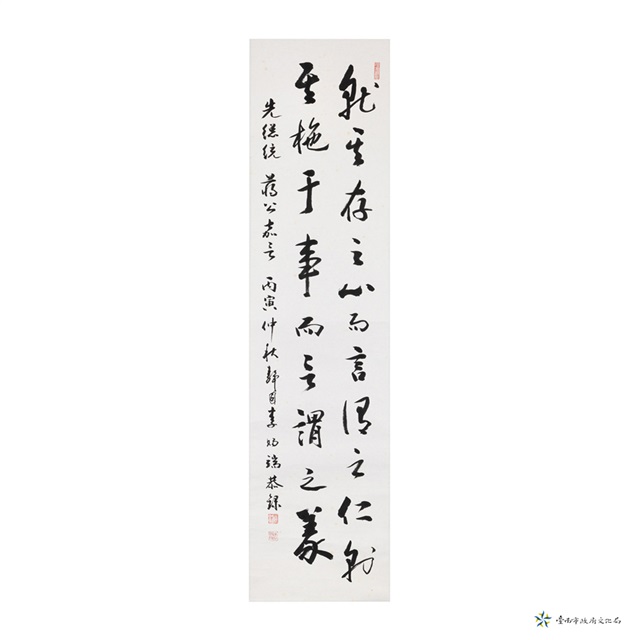 就其存之心而言謂之仁就
其施于事而言謂之義
先總統 蔣公嘉言 丙寅仲秋 李 瑞恭錄
臺南市政府文化局